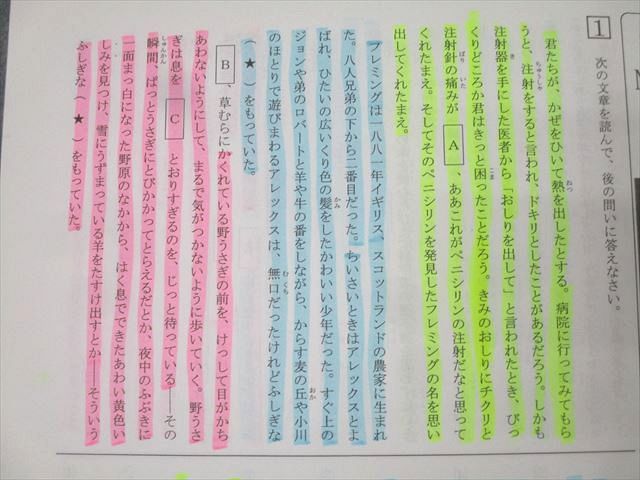 1 次の文章を読んで、後の問いに答えなさい。
君たちが、かぜをひいて熱を出したとする。病院に行ってみてもら
うと、注射をすると言われ、ドキリとしたことがあるだろう。しかも
注射器を手にした医者から「おしりを出して」と言われたとき、びっ
くりどころか君はきっと困ったことだろう。きみのおしりにチクリと
注射針の痛みが A 、ああこれがペニシリンの注射だなと思って
くれたまえ。そしてそのペニシリンを発見したフレミングの名を思い
出してくれたまえ。
フレミングは一八八一年イギリス、スコットランドの農家に生まれ
た。八人兄弟の下から二番目だった。ちいさいときはアレックスとよ
ばれ、ひたいの広いくり色の髪をしたかわいい少年だった。すぐ上の
ジョンや弟のロバートと羊や牛の番をしながら、からす麦の丘や小川
のほとりで遊びまわるアレックスは、無口だったけれどふしぎな
（ ★ ）をもっていた。
B 、草むらにかくれている野うさぎの前を、けっして目がかち
あわないようにして、まるで気がつかないように歩いていく。野うさ
ぎは息を C とおりすぎるのを、じっと待っている――その
瞬間、ぱっとうさぎにとびかかってとらえるだとか、夜中のふぶきに
一面まっ白になった野原のなかから、はく息でできたあわい黄色い
しみを見つけ、雪にうずまっている羊をたすけ出すとか――そういう
ふしぎな（ ★ ）をもっていた。